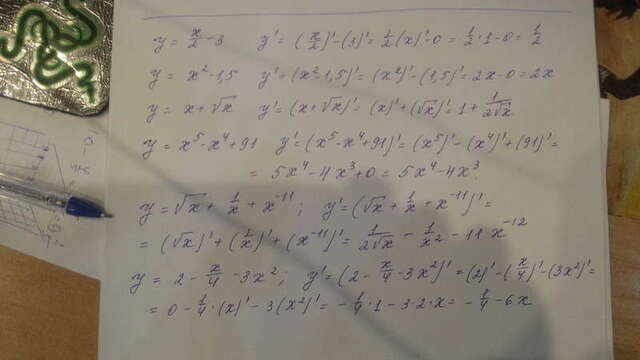 y = x/2 - 3   y' = (x/2)' - (3)' = 1/2 (x)' - 0 = 1/2 · 1 - 0 = 1/2
y = x² - 1,5   y' = (x² - 1,5)' = (x²)' - (1,5)' = 2x - 0 = 2x
y = x + √x   y' = (x + √x)' = (x)' + (√x)' = 1 + 1/(2√x)
y = x⁵ - x⁴ + 91   y' = (x⁵ - x⁴ + 91)' = (x⁵)' - (x⁴)' + (91)' =
= 5x⁴ - 4x³ + 0 = 5x⁴ - 4x³.
y = √x + 1/x + x⁻¹¹ ;   y' = (√x + 1/x + x⁻¹¹)' =
= (√x)' + (1/x)' + (x⁻¹¹)' = 1/(2√x) - 1/x² - 11·x⁻¹²
y = 2 - x/4 - 3x² ;   y' = (2 - x/4 - 3x²)' = (2)' - (x/4)' - (3x²)' =
= 0 - 1/4 · (x)' - 3(x²)' = - 1/4 · 1 - 3·2·x = - 1/4 - 6x